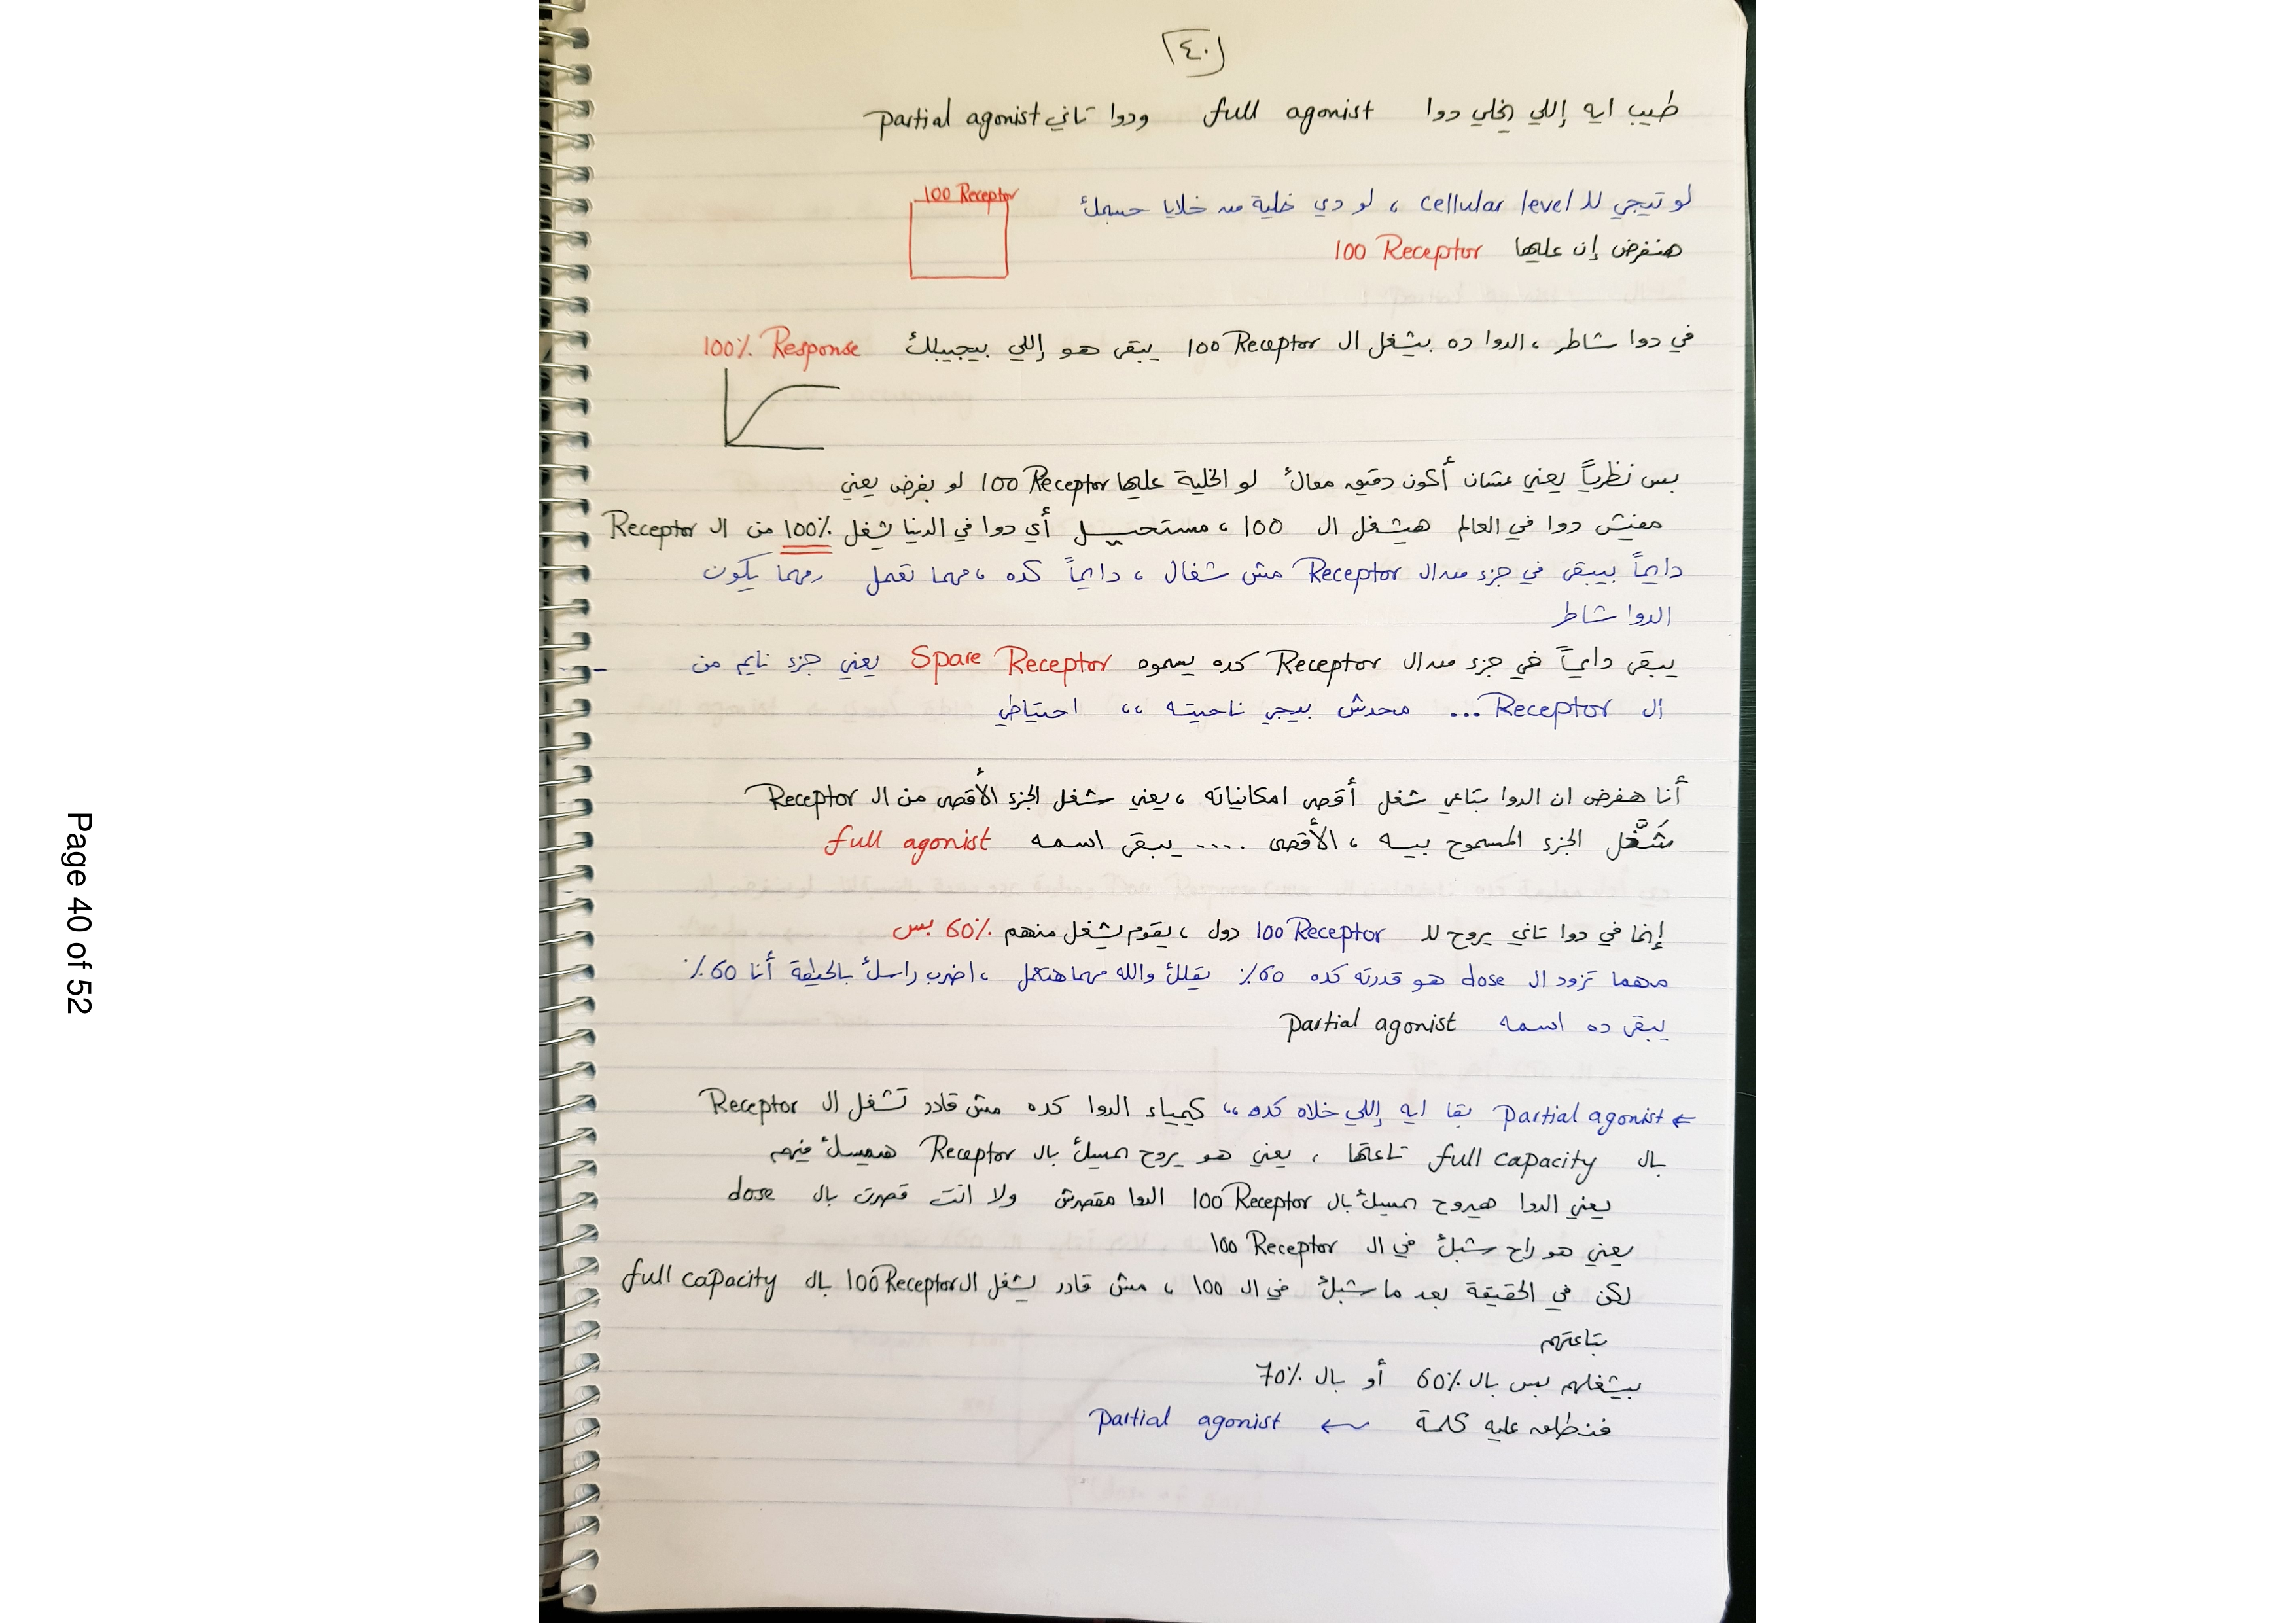 ٤٠
طيب ايه إللي يخلي دوا full agonist ودوا تاني partial agonist
100 Receptor
لو تيجي للـ cellular level ، لو دي خلية من خلايا جسمك
هنفرض إن عليها 100 Receptor
في دوا شاطر ، الدوا ده بيشغل ال 100 Receptor يبقى هو إللي بيجيبلك 100% Response
بس نظرياً يعني عشان أكون دقيق معاك لو الخلية عليها 100 Receptor لو بفرض يعني
مفيش دوا في العالم هيشغل ال 100 ، مستحيل أي دوا في الدنيا يشغل 100% من ال Receptor
دايماً بيبقى في جزء من ال Receptor مش شغال ، دايماً كده ، مهما تعمل ومهما يكون
الدوا شاطر
يبقى دايماً في جزء من ال Receptor كده يسموه Spare Receptor يعني جزء نايم من
ال Receptor ... محدش بيجي ناحيته ،، احتياطي
أنا هفرض ان الدوا بتاعي شغل أقصى امكانياته ، يعني شغل الجزء الأقصى من ال Receptor
شَغَّل الجزء المسموح بيه ، الأقصى .... يبقى اسمه full agonist
إنما في دوا تاني يروح للـ 100 Receptor دول ، يقوم يشغل منهم 60% بس
مهما تزود ال dose هو قدرته كده 60% يقلك والله مهما هتعمل ، اضرب راسك بالحيطة أنا 60%
يبقى ده اسمه partial agonist
← Partial agonist بقا ايه إللي خلاه كده ،، كيمياء الدوا كده مش قادر تشغل ال Receptor
بال full capacity تاعتها ، يعني هو يروح يمسك بال Receptor هيمسك فيهم
يعني الدوا هيروح يمسك بال 100 Receptor الدوا مقصرش ولا انت قصرت بال dose
يعني هو راح شبك في ال 100 Receptor
لكن في الحقيقة بعد ما شبك في ال 100 ، مش قادر يشغل ال 100 Receptor بال full capacity
بتاعتهم
بيشغلهم بس بال 60% أو بال 70%
فنطلق عليه كلمة ← partial agonist
Page 40 of 52